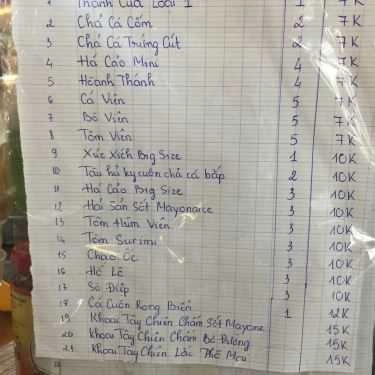 1 Thanh Cua Loại 1 1 7K
2 Chả Cá Cốm 2 7K
3 Chả Cá Trứng Cút 2 7K
4 Há Cảo Mini 4 7K
5 Hoành Thánh 4 7K
6 Cá Viên 5 7K
7 Bò Viên 5 7K
8 Tôm Viên 5 7K
9 Xúc Xích Big Size 1 10K
10 Tàu hủ ky cuốn chả cá bắp 2 10K
11 Há Cảo Big Size 3 10K
12 Hải Sản Sốt Mayonaise 3 10K
13 Tôm Hùm Viên 3 10K
14 Tôm Surimi 3 10K
15 Chạo Ốc 3 10K
16 Hồ Lô 3 10K
17 Sò Điệp 3 10K
18 Cá Cuộn Rong Biển 1 12K
19 Khoai Tây Chiên Chấm Sốt Mayone 15K
20 Khoai Tây Chiên Chấm Bò Đường 15K
21 Khoai Tây Chiên Lắc Phô Mai 15K